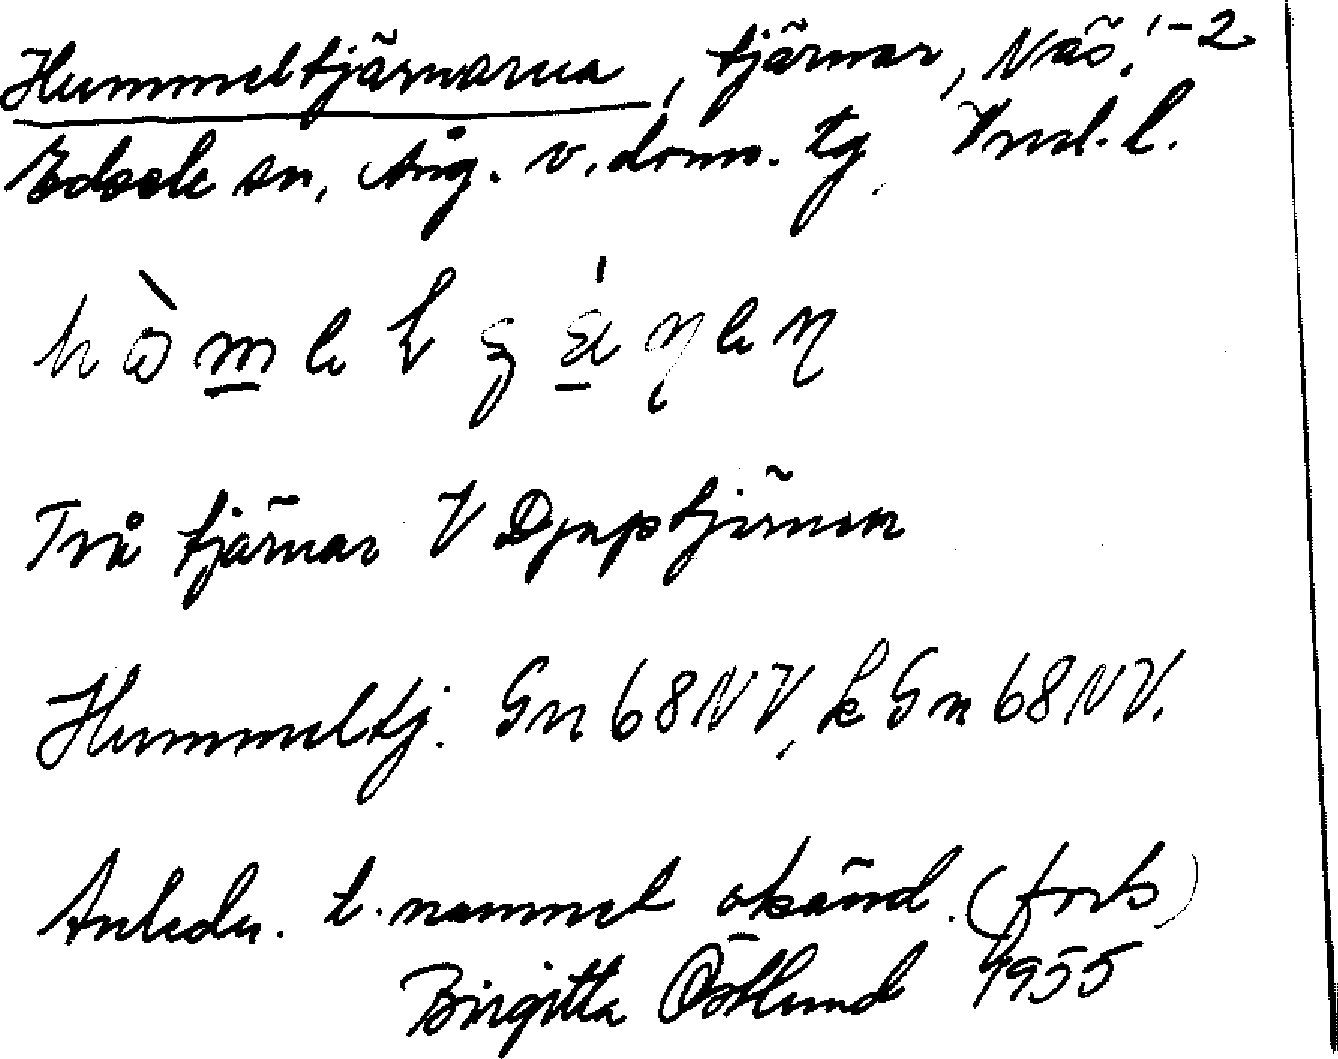 Hummeltjärnarna, tjärnar, Näs, 1-2
Edsele sn, Ång. v. doms. tg Vml. l.
Två tjärnar V Djuptjärnen
Hummeltj. Gn 68 NV, k Gn 68 NV.
Anledn. t. namnet okänd. (forts)
Birgitta Östlund 1955